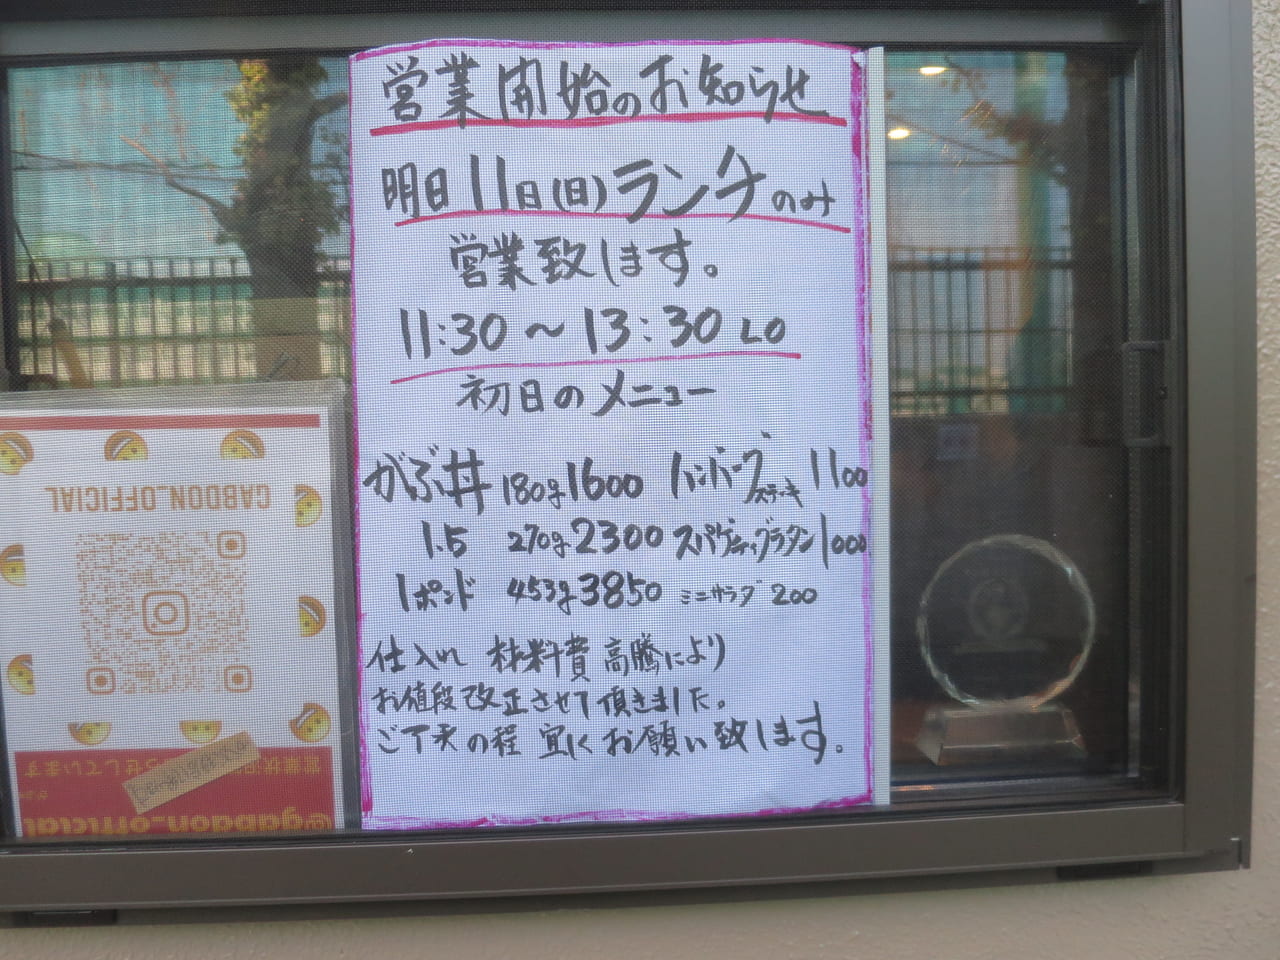 営業開始のお知らせ
明日11日(日)ランチのみ
営業致します。
11:30～13:30 LO
初日のメニュー
がぶ丼 180g 1600 ハンバーグステーキ 1100
1.5 270g 2300 スパゲティグラタン 1000
1ポンド 453g 3850 ミニサラダ 200
仕入れ 材料費高騰により
お値段改正させて頂きました。
ご了承の程 宜しくお願い致します。
GABDON_OFFICIAL
@gabdon_official